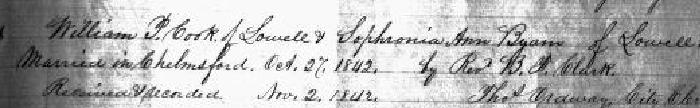 William P. Cook of Lowell & Sophronia Ann Byam of Lowell.
Married in Chelmsford. Oct. 27, 1842. by Revd. B. F. Clark.
Received & recorded Nov. 2, 1842. Thos. Ordway, City